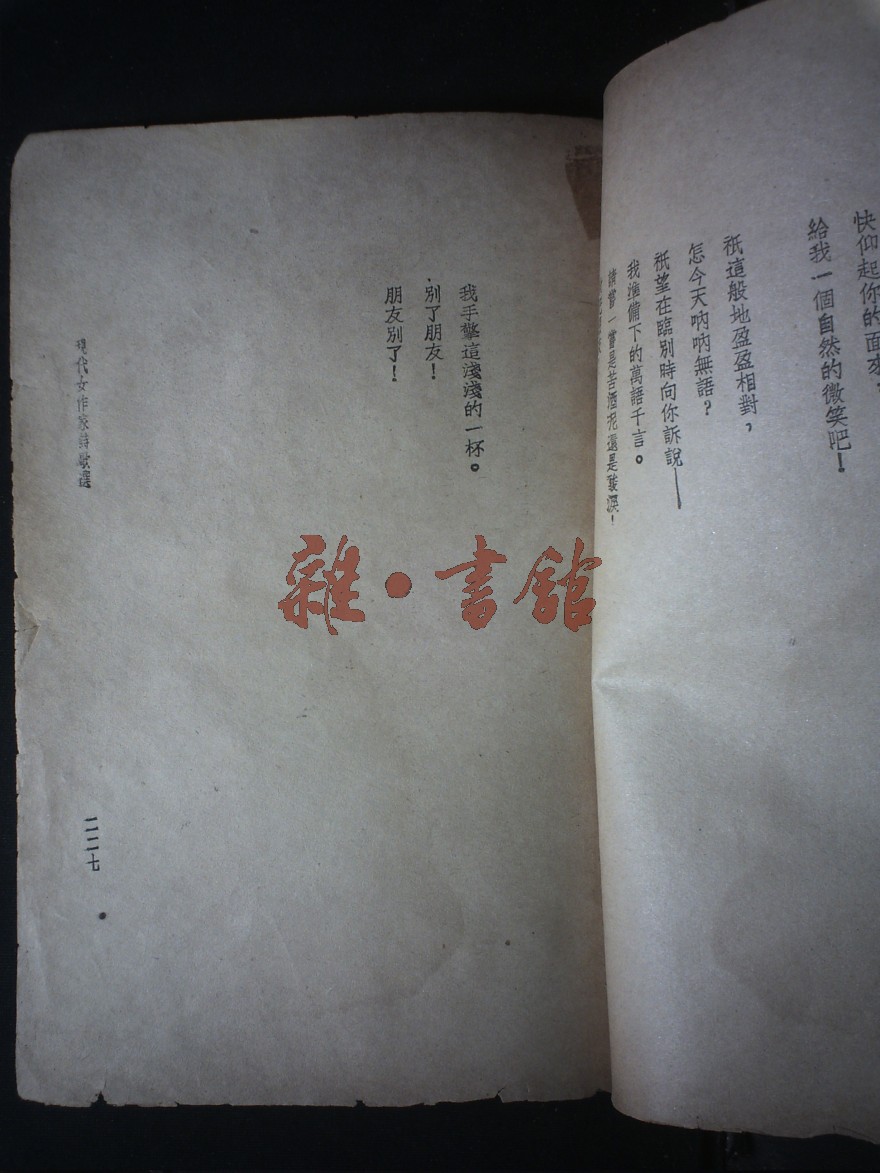 快仰起你的面來，
給我一個自然的微笑吧！
祇這般地盈盈相對，
怎今天吶吶無語？
祇望在臨別時向你訴說——
我準備下的萬語千言。
請嘗一嘗是苦酒呢還是酸淚！
我手擎這淺淺的一杯。
別了朋友！
朋友別了！
現代女作家詩歌選
二二七
雜·書館